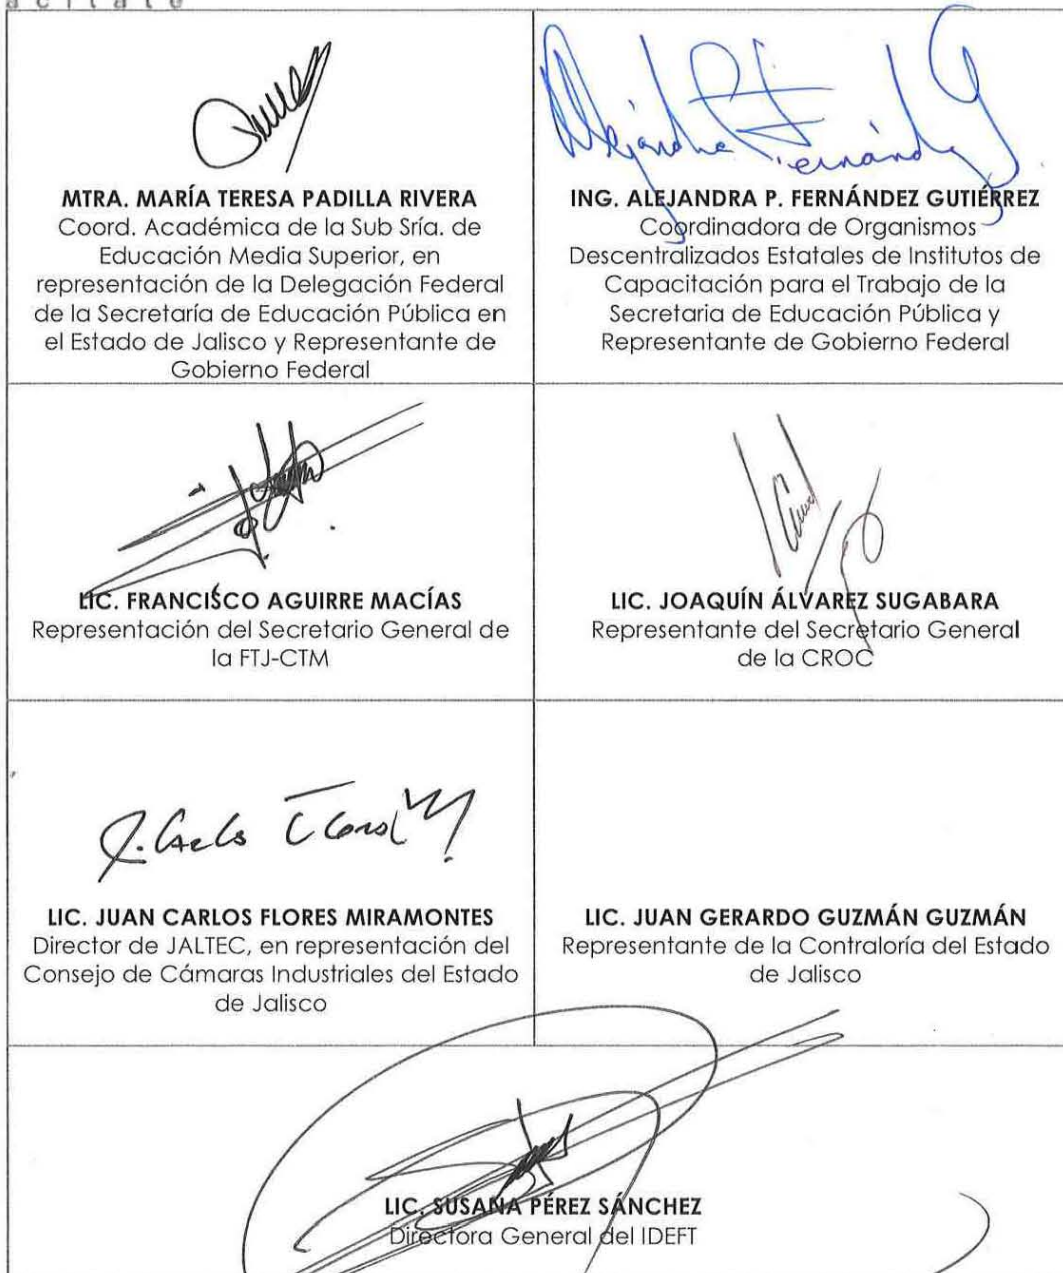 MTRA. MARÍA TERESA PADILLA RIVERA
Coord. Académica de la Sub Sría. de
Educación Media Superior, en
representación de la Delegación Federal
de la Secretaría de Educación Pública en
el Estado de Jalisco y Representante de
Gobierno Federal
Alejandra P. Fernández G
ING. ALEJANDRA P. FERNÁNDEZ GUTIÉRREZ
Coordinadora de Organismos
Descentralizados Estatales de Institutos de
Capacitación para el Trabajo de la
Secretaria de Educación Pública y
Representante de Gobierno Federal
LIC. FRANCISCO AGUIRRE MACÍAS
Representación del Secretario General de
la FTJ-CTM
LIC. JOAQUÍN ÁLVAREZ SUGABARA
Representante del Secretario General
de la CROC
LIC. JUAN CARLOS FLORES MIRAMONTES
Director de JALTEC, en representación del
Consejo de Cámaras Industriales del Estado
de Jalisco
LIC. JUAN GERARDO GUZMÁN GUZMÁN
Representante de la Contraloría del Estado
de Jalisco
LIC. SUSANA PÉREZ SÁNCHEZ
Directora General del IDEFT